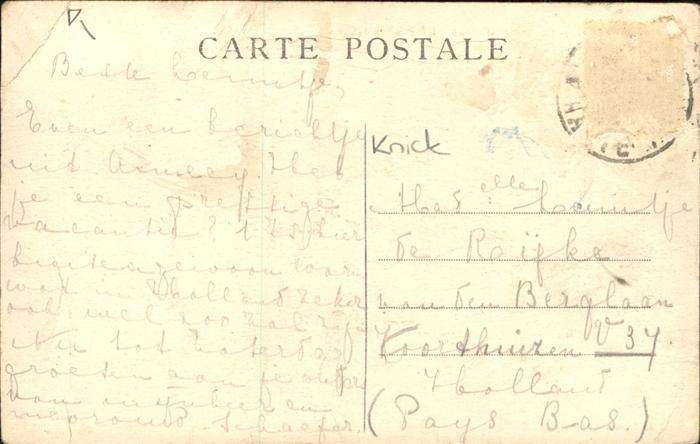 CARTE POSTALE
Beste Leuntje,
Even een berichtje
uit Annecy. Heb
je een prettige
vacantie? 't Is hier
buitengewoon warm
was in Holland zeker
ook wel zoo
Nu tot Zaterdag
groeten aan je ouders
van mijnheer en
mevrouw Schaefer.
Knick
Melle Leuntje
de Rijke
van den Berglaan
Voorthuizen V 37
Holland
(Pays Bas.)